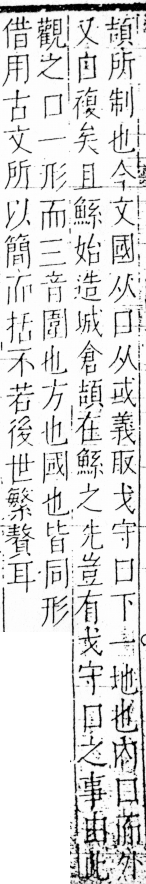 頡所制也今文國从囗从或義取戈守囗下一地也內囗而外
又囗複矣且鯀始造城倉頡在鯀之先豈有戈守囗之事由此
觀之囗一形而三音圍也方也國也皆同形
借用古文所以簡而括不若後世繁贅耳